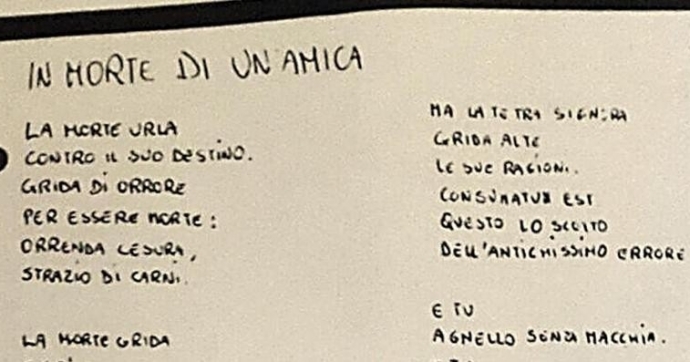 IN MORTE DI UN'AMICA
LA MORTE URLA
CONTRO IL SUO DESTINO.
GRIDA DI ORRORE
PER ESSERE MORTE:
ORRENDA CESURA,
STRAZIO DI CARNI.
LA MORTE GRIDA
MA LA TETRA SIGNORA
GRIDA ALTE
LE SUE RAGIONI.
CONSUMATUM EST
QUESTO LO SCELTO
DELL'ANTICHISSIMO ERRORE
E TU
AGNELLO SENZA MACCHIA.